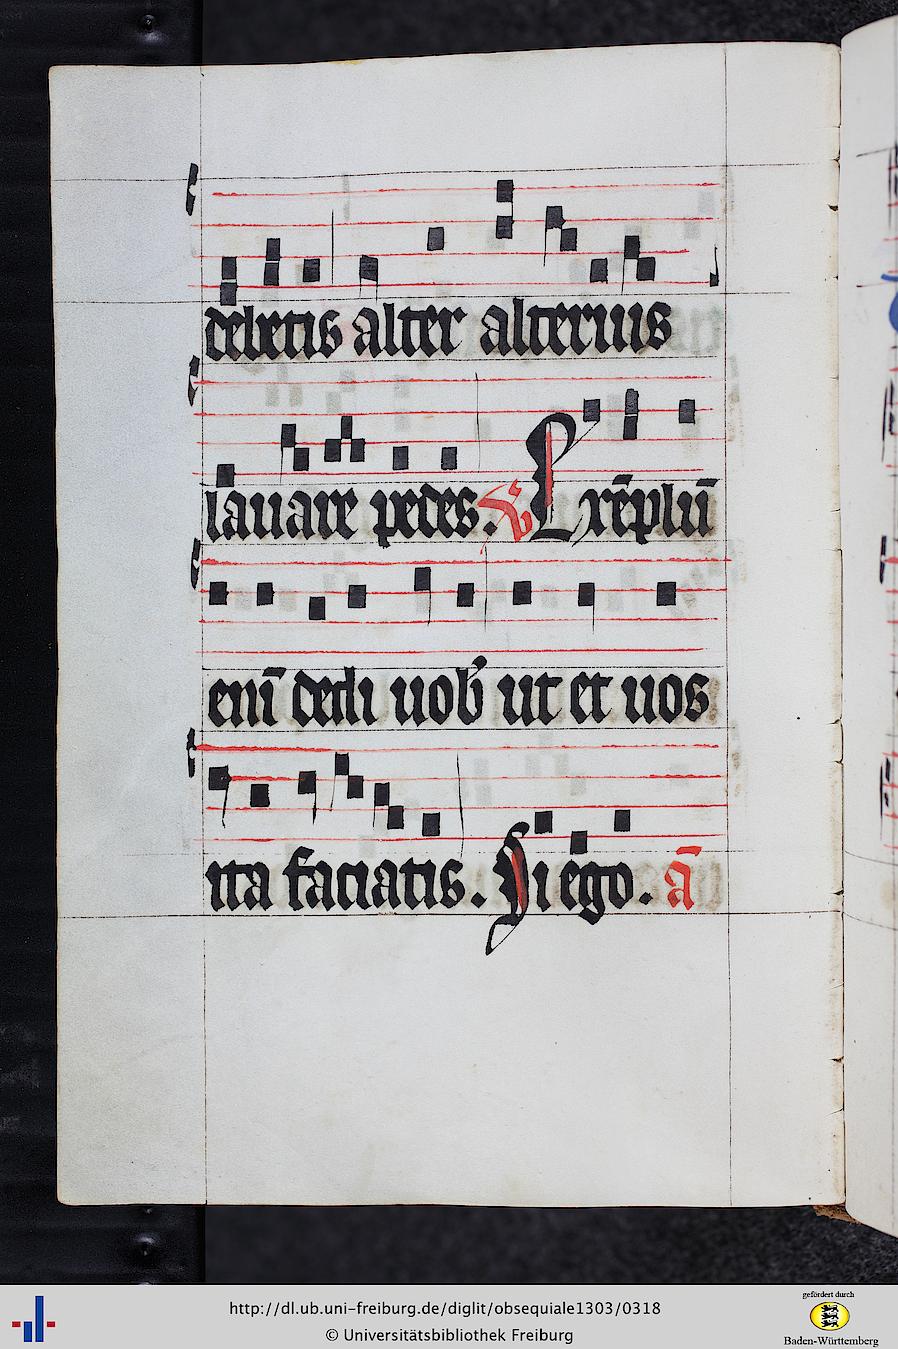 debetis alter alterius
lauare pedes. V Exēplū
enī dedi uob ut et uos
ita faciatis. Si ego. ā
http://dl.ub.uni-freiburg.de/diglit/obsequiale1303/0318
© Universitätsbibliothek Freiburg
gefördert durch
Baden-Württemberg